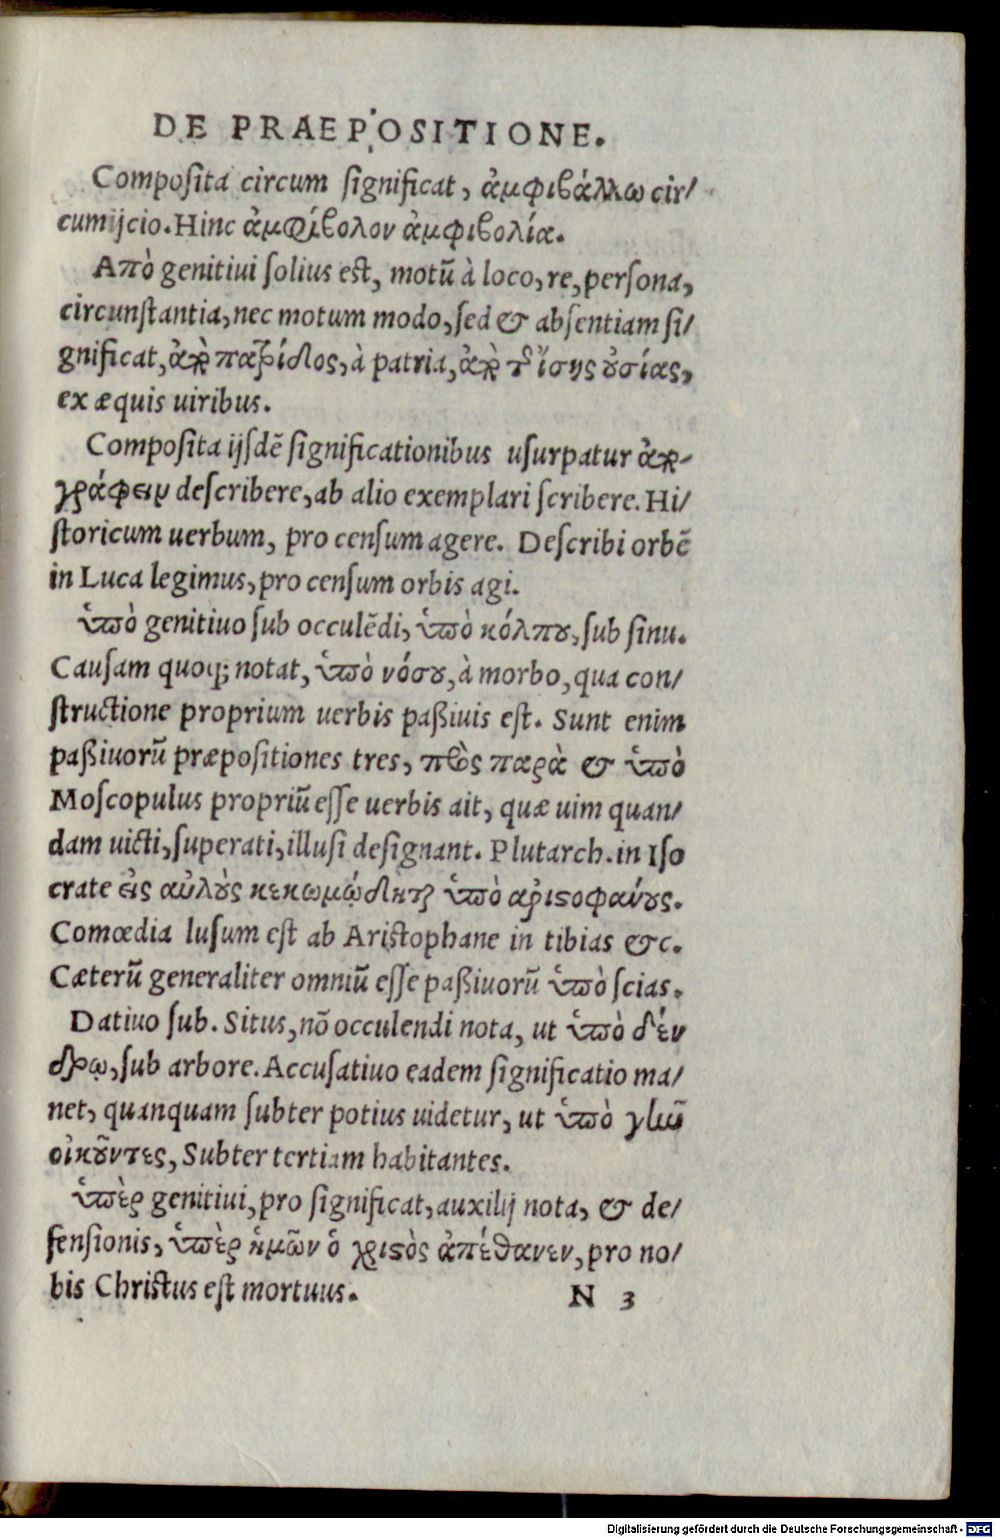 DE PRAEPOSITIONE.
Composita circum significat, ἀμφιβάλλω cir/
cumijcio. Hinc ἀμφίβολον ἀμφιβολία.
Απὸ genitiui solius est, motũ à loco, re, persona,
circunstantia, nec motum modo, sed & absentiam si/
gnificat, ἀπὸ πατρίδος, à patria, ἀπὸ τῆς ἴσης ὀσίας,
ex æquis uiribus.
Composita ijsdẽ significationibus usurpatur ἀπο-
γράφειν describere, ab alio exemplari scribere. Hi/
storicum uerbum, pro censum agere. Describi orbẽ
in Luca legimus, pro censum orbis agi.
ὑπὸ genitiuo sub occulẽdi, ὑπὸ κόλπου, sub sinu.
Causam quoq; notat, ὑπὸ νόσου, à morbo, qua con/
structione proprium uerbis paßiuis est. Sunt enim
paßiuorũ præpositiones tres, πρὸς παρὰ & ὑπὸ
Moscopulus propriũ esse uerbis ait, quæ uim quan/
dam uicti, superati, illusi designant. Plutarch. in Iso
crate εἰς αὐλοὺς κεκωμῴδηται ὑπὸ ἀριστοφάνους.
Comœdia lusum est ab Aristophane in tibias &c.
Cæterũ generaliter omniũ esse paßiuorũ ὑπὸ scias.
Datiuo sub. Situs, nõ occulendi nota, ut ὑπὸ δέν
δρῳ, sub arbore. Accusatiuo eadem significatio ma/
net, quanquam subter potius uidetur, ut ὑπὸ γῆν
οἰκοῦντες, Subter tertiam habitantes.
ὑπὲρ genitiui, pro significat, auxilij nota, & de/
fensionis, ὑπὲρ ἡμῶν ὁ χριστὸς ἀπέθανεν, pro no/
bis Christus est mortuus.
N 3
Digitalisierung gefördert durch die Deutsche Forschungsgemeinschaft - DFG